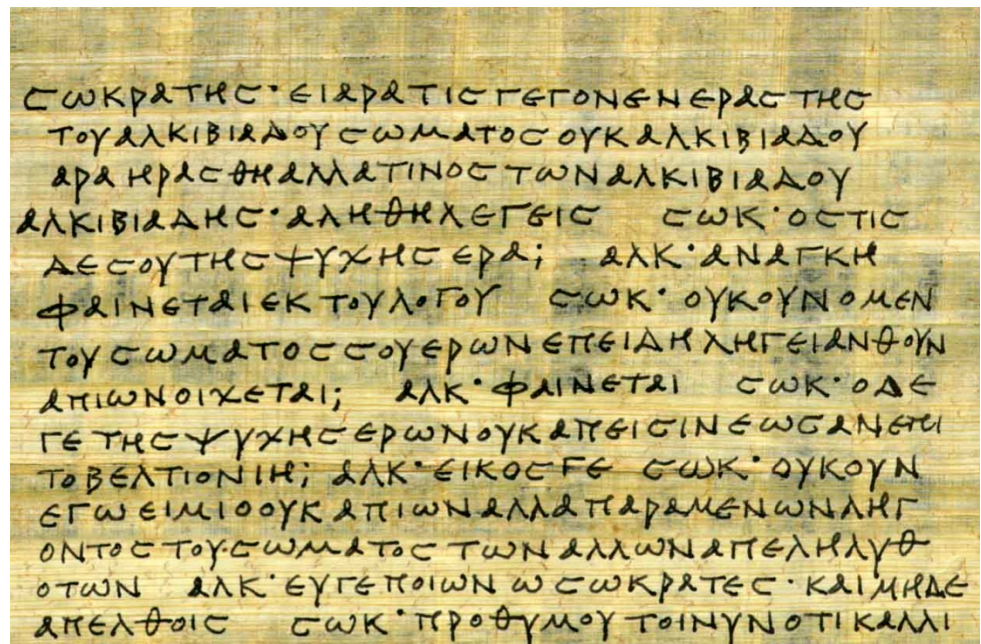 ϹΩΚΡΑΤΗϹ· ΕΙΑΡΑΤΙϹΓΕΓΟΝΕΝΕΡΑϹΤΗϹ
ΤΟΥΑΛΚΙΒΙΑΔΟΥϹΩΜΑΤΟϹΟΥΚΑΛΚΙΒΙΑΔΟΥ
ΑΡΑΗΡΑϹΘΗΑΛΛΑΤΙΝΟϹΤΩΝΑΛΚΙΒΙΑΔΟΥ
ΑΛΚΙΒΙΑΔΗϹ· ΑΛΗΘΗΛΕΓΕΙϹ ϹΩΚ· ΟϹΤΙϹ
ΔΕϹΟΥΤΗϹΨΥΧΗϹΕΡΑ; ΑΛΚ· ΑΝΑΓΚΗ
ΦΑΙΝΕΤΑΙΕΚΤΟΥΛΟΓΟΥ ϹΩΚ· ΟΥΚΟΥΝΟΜΕΝ
ΤΟΥϹΩΜΑΤΟϹϹΟΥΕΡΩΝΕΠΕΙΔΗΛΗΓΕΙΑΝΘΟΥΝ
ΑΠΙΩΝΟΙΧΕΤΑΙ; ΑΛΚ· ΦΑΙΝΕΤΑΙ ϹΩΚ· ΟΔΕ
ΓΕΤΗϹΨΥΧΗϹΕΡΩΝΟΥΚΑΠΕΙϹΙΝΕΩϹΑΝΕΠΙ
ΤΟΒΕΛΤΙΟΝΙΗ; ΑΛΚ· ΕΙΚΟϹΓΕ ϹΩΚ· ΟΥΚΟΥΝ
ΕΓΩΕΙΜΙΟΟΥΚΑΠΙΩΝΑΛΛΑΠΑΡΑΜΕΝΩΝΛΗΓ
ΟΝΤΟϹΤΟΥϹΩΜΑΤΟϹΤΩΝΑΛΛΩΝΑΠΕΛΗΛΥΘ
ΟΤΩΝ ΑΛΚ· ΕΥΓΕΠΟΙΩΝΩϹΩΚΡΑΤΕϹ· ΚΑΙΜΗΔΕ
ΑΠΕΛΘΟΙϹ ϹΩΚ· ΠΡΟΘΥΜΟΥΤΟΙΝΥΝΟΤΙΚΑΛΛΙ